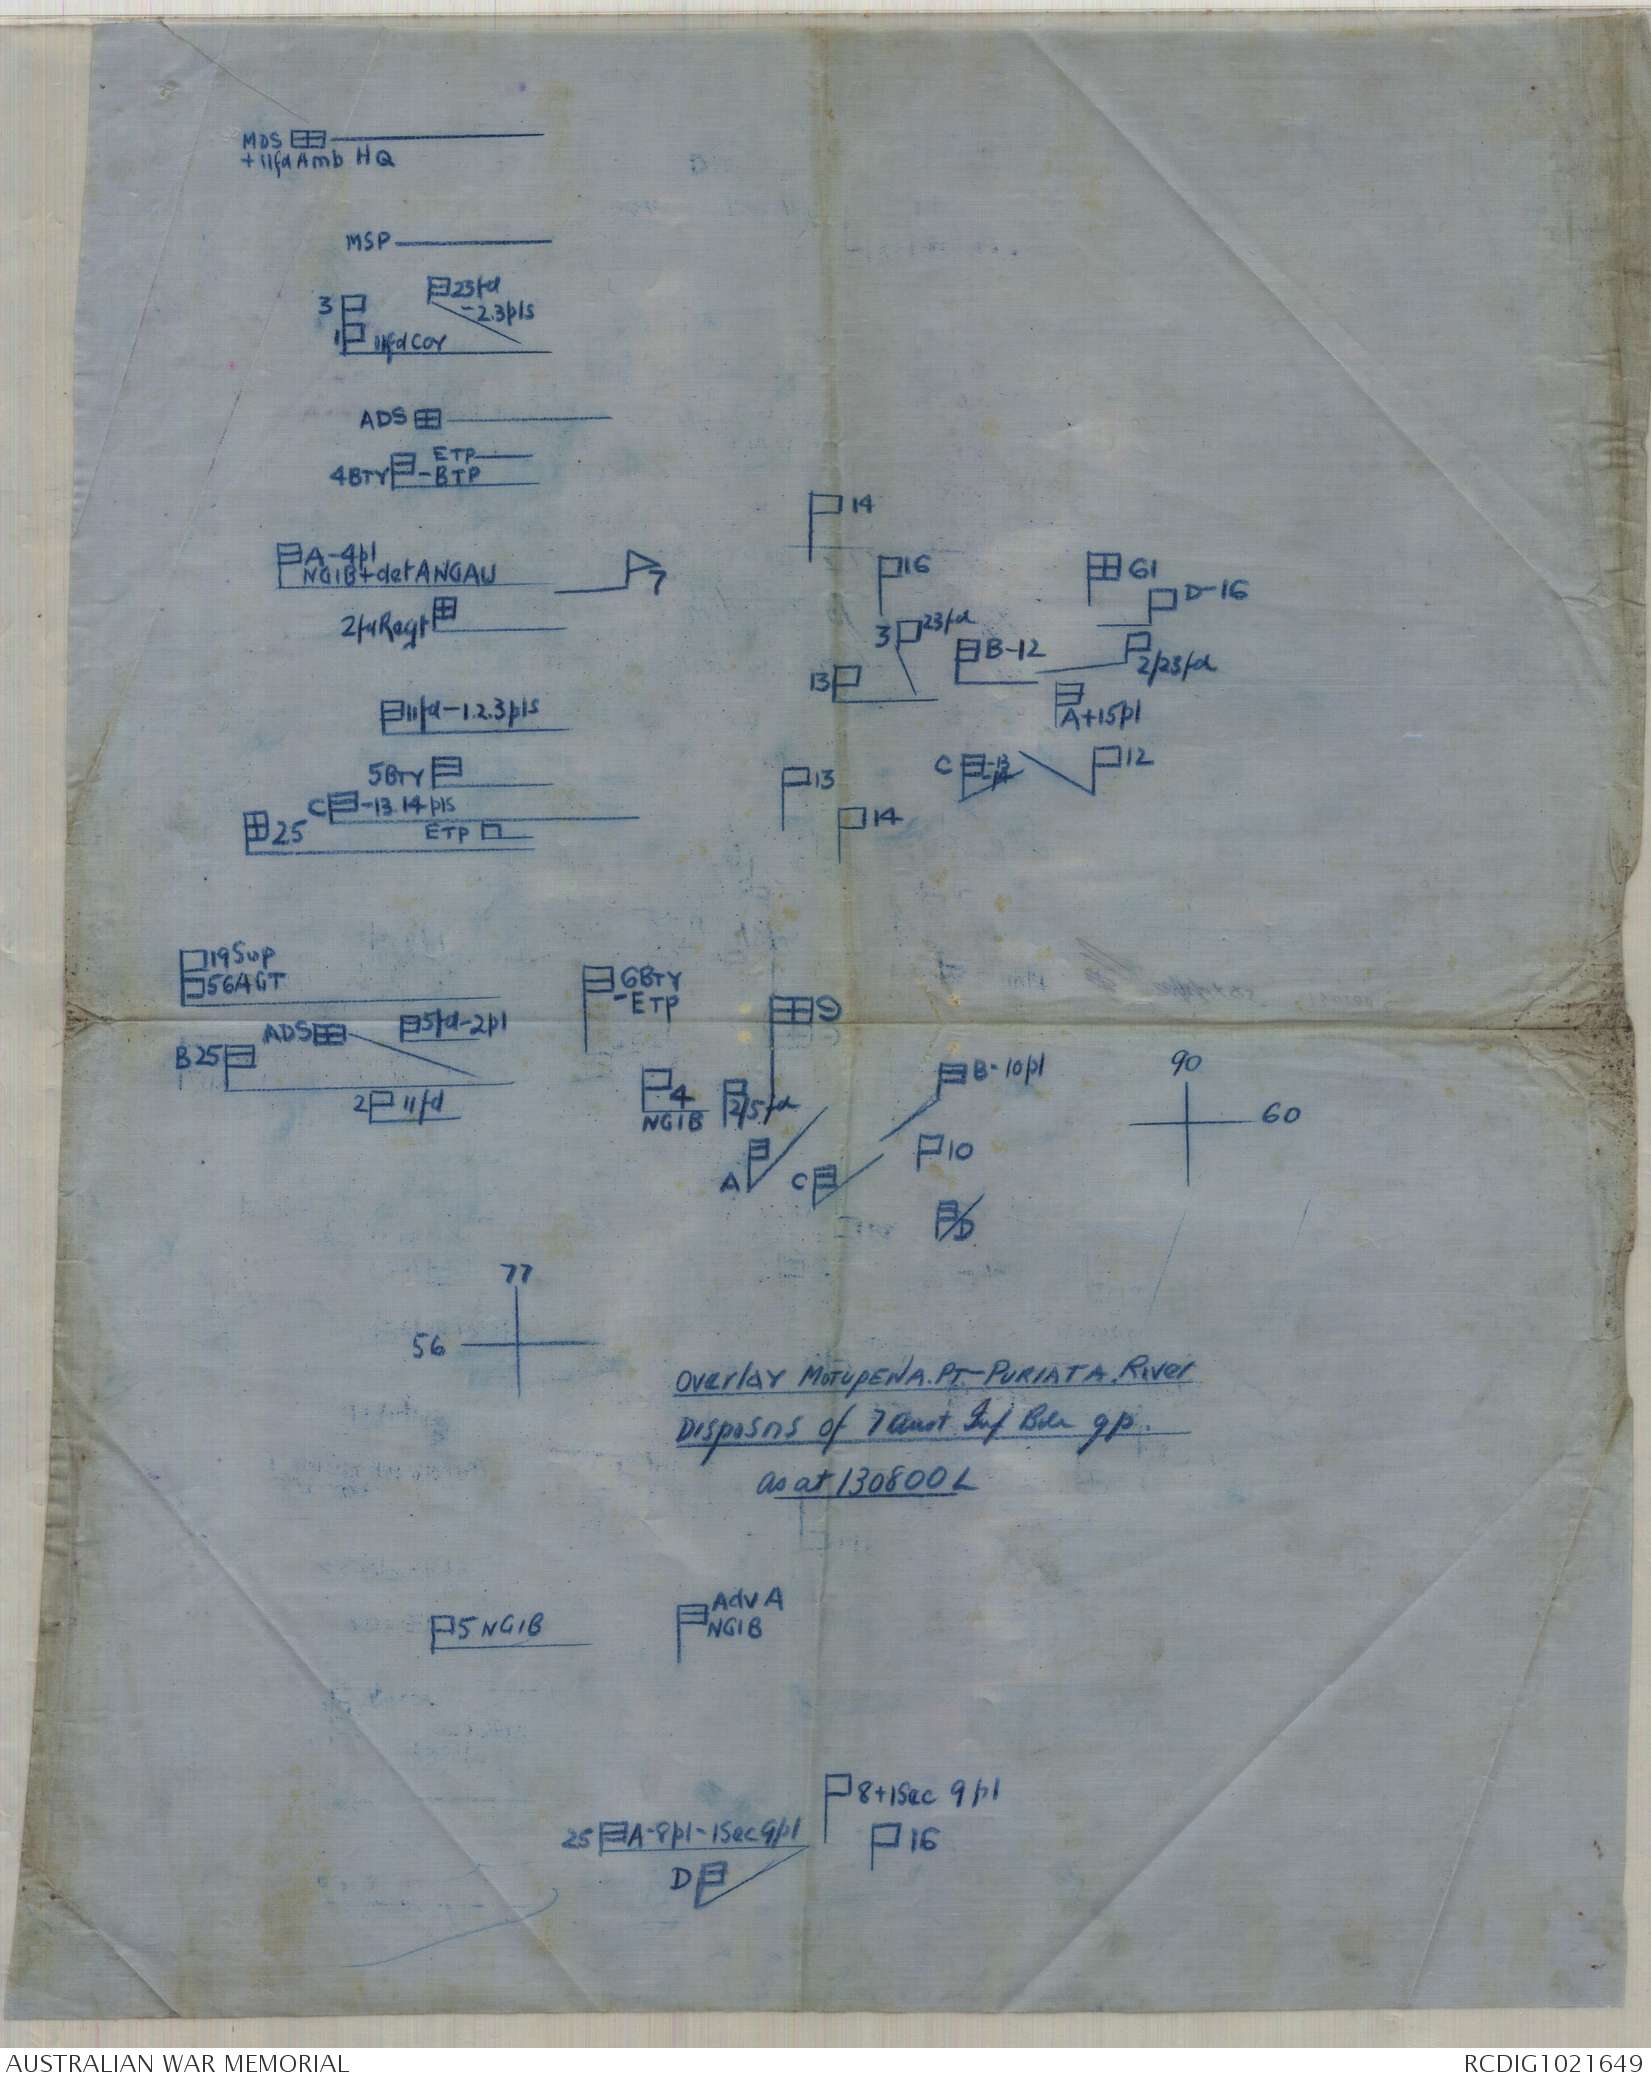 MDS
+ 11fd Amb HQ
MSP
23fd
-2.3pls
3
1
11fd Coy
ADS
ETP
4BTY -BTP
A-4pl
NGIB+det ANGAU
7
2fd Regt
11fd-1.2.3pls
5BTY
C -13.14 pls
25
ETP
14
16
61
D-16
3 23fd
B-12
2/23fd
13
A+15pl
C -13
-14
12
13
14
19 Sup
56AGT
6BTY
-ETP
9
ADS
5fd-2pl
B25
2 11fd
4
NGIB
2/5fd
B-10pl
90
60
A
C
10
D
77
56
Overlay MOTUPENA.PT-PURIATA.River
Disposns of 7 Aust Inf Bde gp.
as at 130800L
5 NGIB
Adv A
NGIB
8+1Sec 9pl
25 A-8pl-1Sec9pl
16
D
AUSTRALIAN WAR MEMORIAL
RCDIG1021649